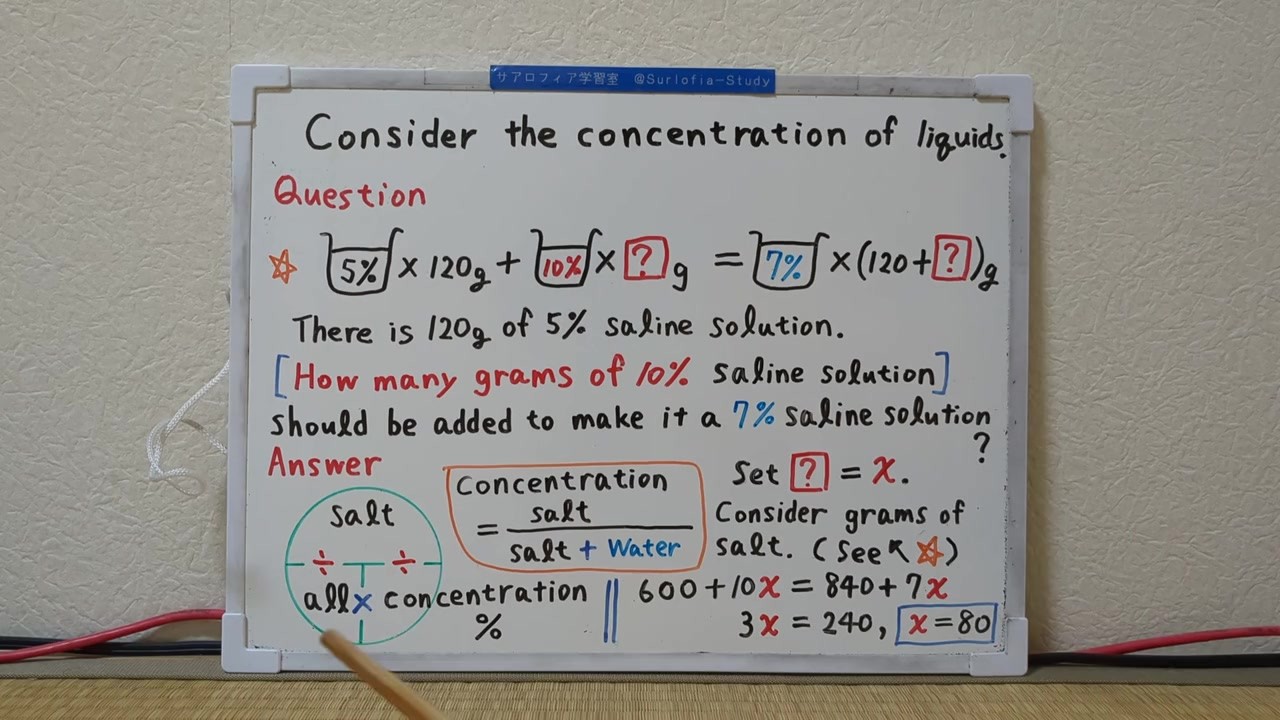 サアロフィア学習室 @Surlofia-Study
Consider the concentration of liquids.
Question
☆ 5% × 120g + 10% × ? g = 7% × (120+ ? )g
There is 120g of 5% saline solution.
[How many grams of 10% saline solution]
should be added to make it a 7% saline solution
?
Answer
salt
÷ ÷
all × concentration
%
Concentration
= salt
salt + Water
Set ? = x.
Consider grams of
salt. (See ↖ ☆)
600+10x = 840+7x
3x = 240, x=80